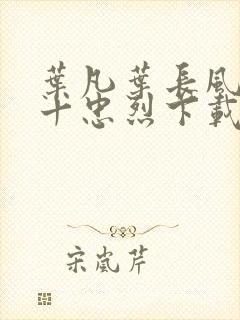 葉凡葉長風
十忠烈下載
宋嵐芹